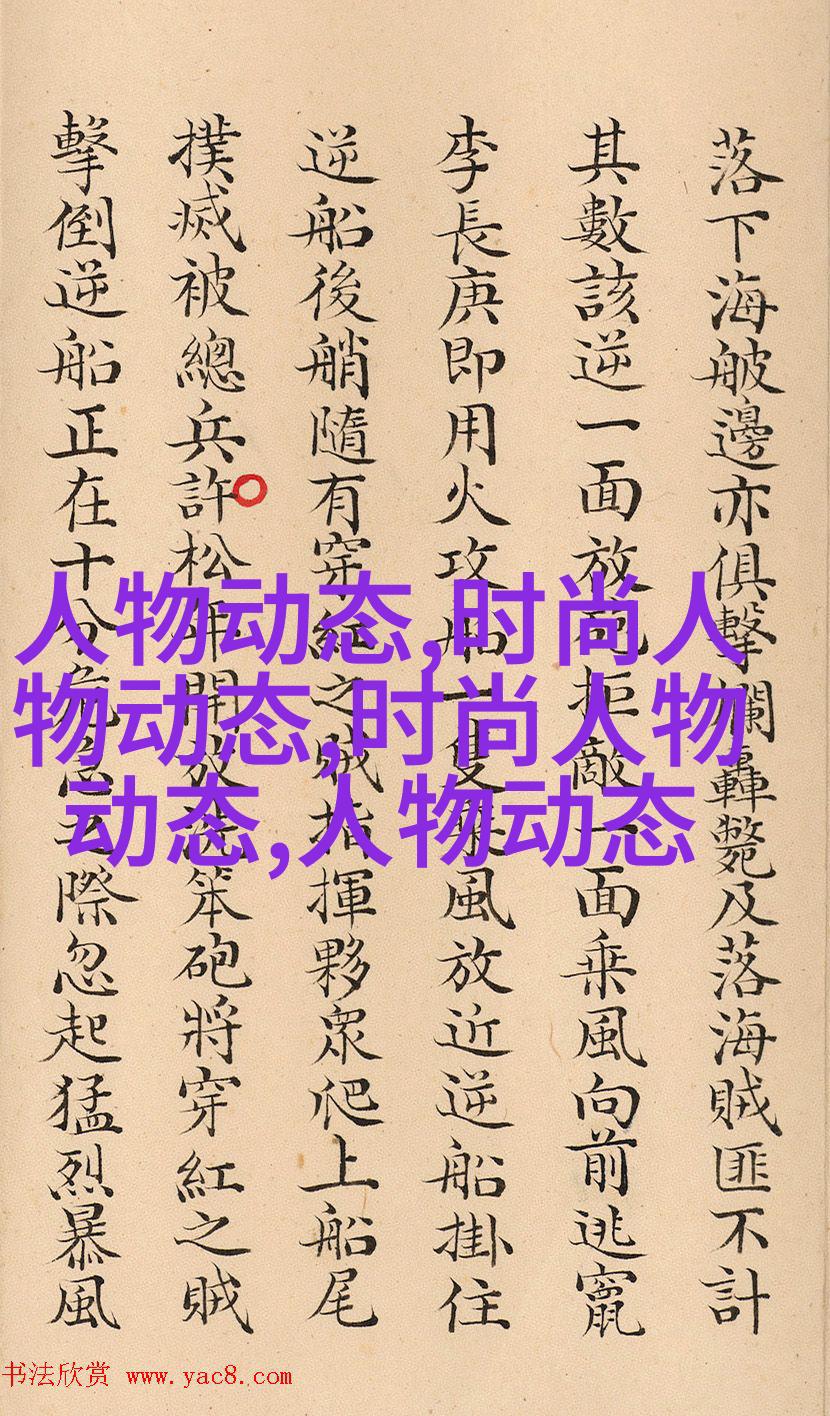 落下海邊亦俱擊爛轟斃及落海賊匪不計
其數該逆一面放砲拒敵一面乗風向前逃竄
李長庚即用火攻船一隻乗風放近逆船掛住
逆船後艄隨有穿紅之賊指揮夥衆爬上船尾
撲滅被總兵許松年開放笨砲將穿紅之賊
擊倒逆船正在十分危急之際忽起猛烈暴風
人物动态,时尚人
物动态,时尚人物
动态,人物动态
书法欣赏 www.yac8.com